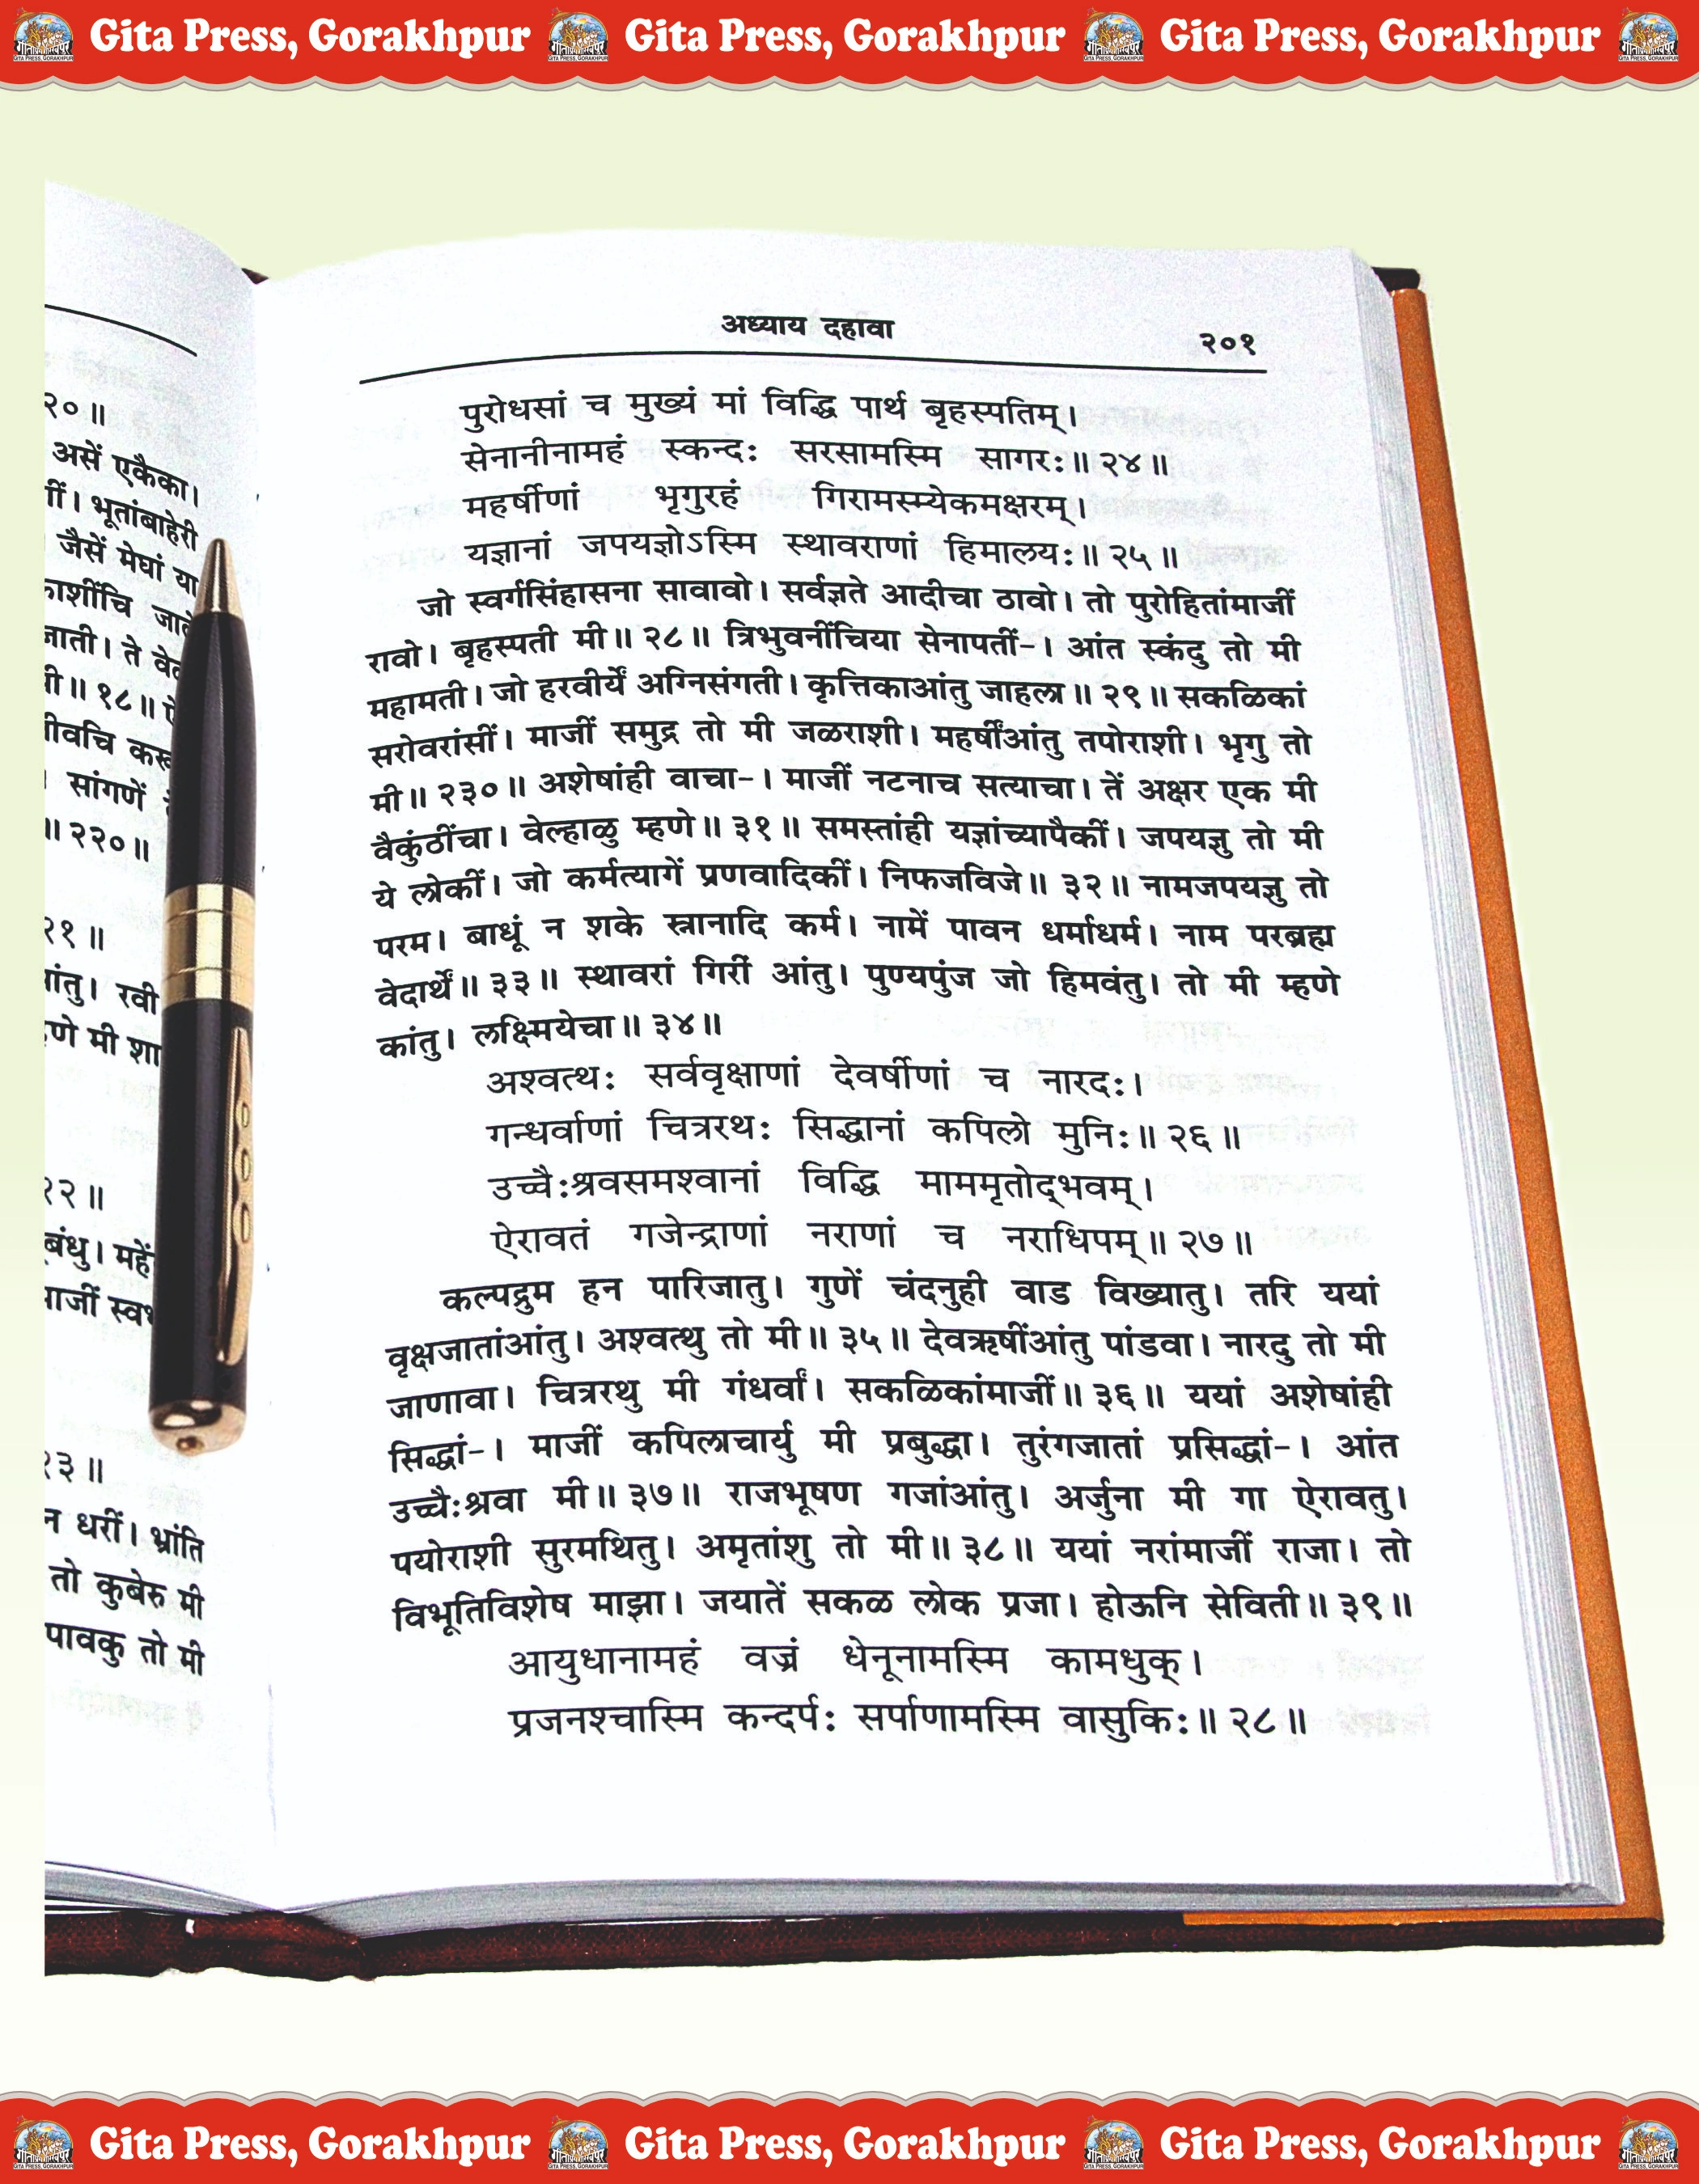 Gita Press, Gorakhpur Gita Press, Gorakhpur Gita Press, Gorakhpur
२० ॥
असें एकैका।
भूतांबाहेरी
जैसें मेघां या
जाती। ते
॥ १८ ॥
सांगणें
॥ २२० ॥
२१ ॥
रवी
मी
२२ ॥
२३ ॥
न धरीं। भ्रांति
तो कुबेरु मी
पावकु तो मी
अध्याय दहावा २०१
पुरोधसां च मुख्यं मां विद्धि पार्थ बृहस्पतिम्।
सेनानीनामहं स्कन्दः सरसामस्मि सागरः॥ २४ ॥
महर्षीणां भृगुरहं गिरामस्म्येकमक्षरम्।
यज्ञानां जपयज्ञोऽस्मि स्थावराणां हिमालयः॥ २५ ॥
जो स्वर्गसिंहासना सावावो। सर्वज्ञते आदीचा ठावो। तो पुरोहितांमाजीं
रावो। बृहस्पती मी॥ २८॥ त्रिभुवनींचिया सेनापतीं-। आंत स्कंदु तो मी
महामती। जो हरवीर्यें अग्निसंगती। कृत्तिकाआंतु जाहला॥ २९॥ सकळिकां
सरोवरांसीं। माजीं समुद्र तो मी जळराशी। महर्षींआंतु तपोराशी। भृगु तो
मी॥ २३०॥ अशेषांही वाचा-। माजीं नटनाच सत्याचा। तें अक्षर एक मी
वैकुंठींचा। वेल्हाळु म्हणे॥ ३१॥ समस्तांही यज्ञांच्यापैकीं। जपयज्ञु तो मी
ये लोकीं। जो कर्मत्यागें प्रणवादिकीं। निफजविजे॥ ३२॥ नामजपयज्ञु तो
परम। बाधूं न शके स्नानादि कर्म। नामें पावन धर्माधर्म। नाम परब्रह्म
वेदार्थें॥ ३३॥ स्थावरां गिरीं आंतु। पुण्यपुंज जो हिमवंतु। तो मी म्हणे
कांतु। लक्ष्मियेचा॥ ३४॥
अश्वत्थः सर्ववृक्षाणां देवर्षीणां च नारदः।
गन्धर्वाणां चित्ररथः सिद्धानां कपिलो मुनिः॥ २६ ॥
उच्चैःश्रवसमश्वानां विद्धि माममृतोद्भवम्।
ऐरावतं गजेन्द्राणां नराणां च नराधिपम्॥ २७ ॥
कल्पद्रुम हन पारिजातु। गुणें चंदनुही वाड विख्यातु। तरि ययां
वृक्षजातांआंतु। अश्वत्थु तो मी॥ ३५॥ देवऋषींआंतु पांडवा। नारदु तो मी
जाणावा। चित्ररथु मी गंधर्वां। सकळिकांमाजीं॥ ३६॥ ययां अशेषांही
सिद्धां-। माजीं कपिलाचार्यु मी प्रबुद्धा। तुरंगजातां प्रसिद्धां-। आंत
उच्चैःश्रवा मी॥ ३७॥ राजभूषण गजांआंतु। अर्जुना मी गा ऐरावतु।
पयोराशी सुरमथितु। अमृतांशु तो मी॥ ३८॥ ययां नरांमाजीं राजा। तो
विभूतिविशेष माझा। जयातें सकळ लोक प्रजा। होऊनि सेविती॥ ३९॥
आयुधानामहं वज्रं धेनूनामस्मि कामधुक्।
प्रजनश्चास्मि कन्दर्पः सर्पाणामस्मि वासुकिः॥ २८ ॥
Gita Press, Gorakhpur Gita Press, Gorakhpur Gita Press, Gorakhpur